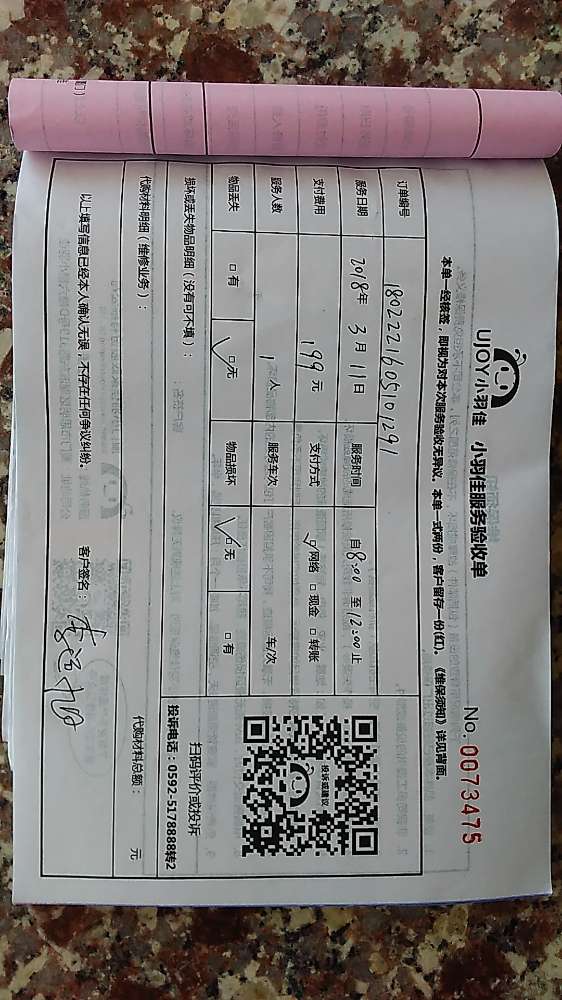 UJOY小羽佳 小羽佳服务验收单
No. 0073475
本单一经核签，即视为对本次服务验收无异议，本单一式两份，客户留存一份(红)。《维保须知》详见背面。
订单编号 1802221605101291
服务日期 2018年 3月11日 服务时间 自8:00 至12:00止
支付费用 199元 支付方式 网络 现金 转账
服务人数 1人 服务车次 车/次
物品丢失 有 无 物品损坏 无 有
投诉或建议
扫码评价或投诉
投诉电话：0592-5178888转2
损坏或丢失物品明细（没有可不填）：
代购材料明细（维修业务）： 代购材料总额： 元
以上填写信息已经本人确认无误，不存在任何争议纠纷。 客户签名：